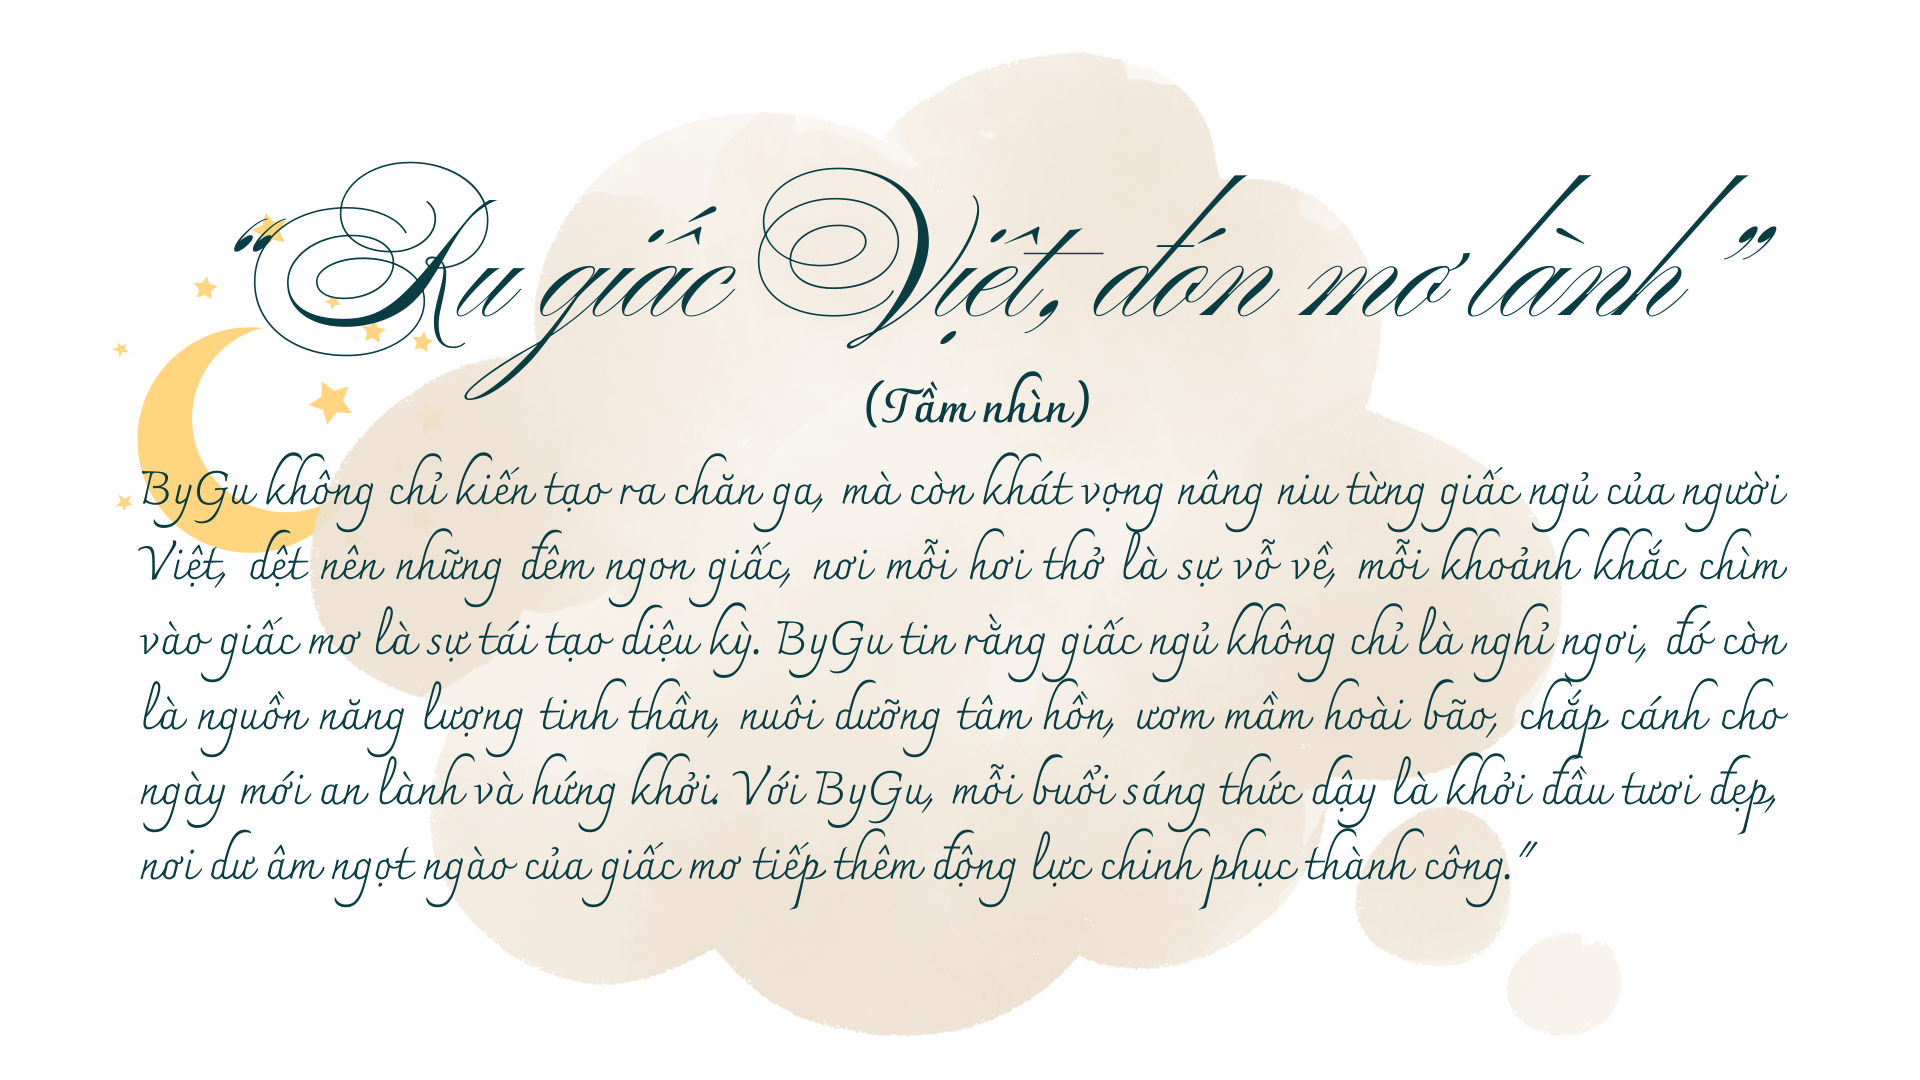 “Ru giấc Việt, đón mơ lành”
(Tầm nhìn)
ByGu không chỉ kiến tạo ra chăn ga, mà còn khát vọng nâng niu từng giấc ngủ của người
Việt, dệt nên những đêm ngon giấc, nơi mỗi hơi thở là sự vỗ về, mỗi khoảnh khắc chìm
vào giấc mơ là sự tái tạo diệu kỳ. ByGu tin rằng giấc ngủ không chỉ là nghỉ ngơi, đó còn
là nguồn năng lượng tinh thần, nuôi dưỡng tâm hồn, ươm mầm hoài bão, chắp cánh cho
ngày mới an lành và hứng khởi. Với ByGu, mỗi buổi sáng thức dậy là khởi đầu tươi đẹp,
nơi dư âm ngọt ngào của giấc mơ tiếp thêm động lực chinh phục thành công."